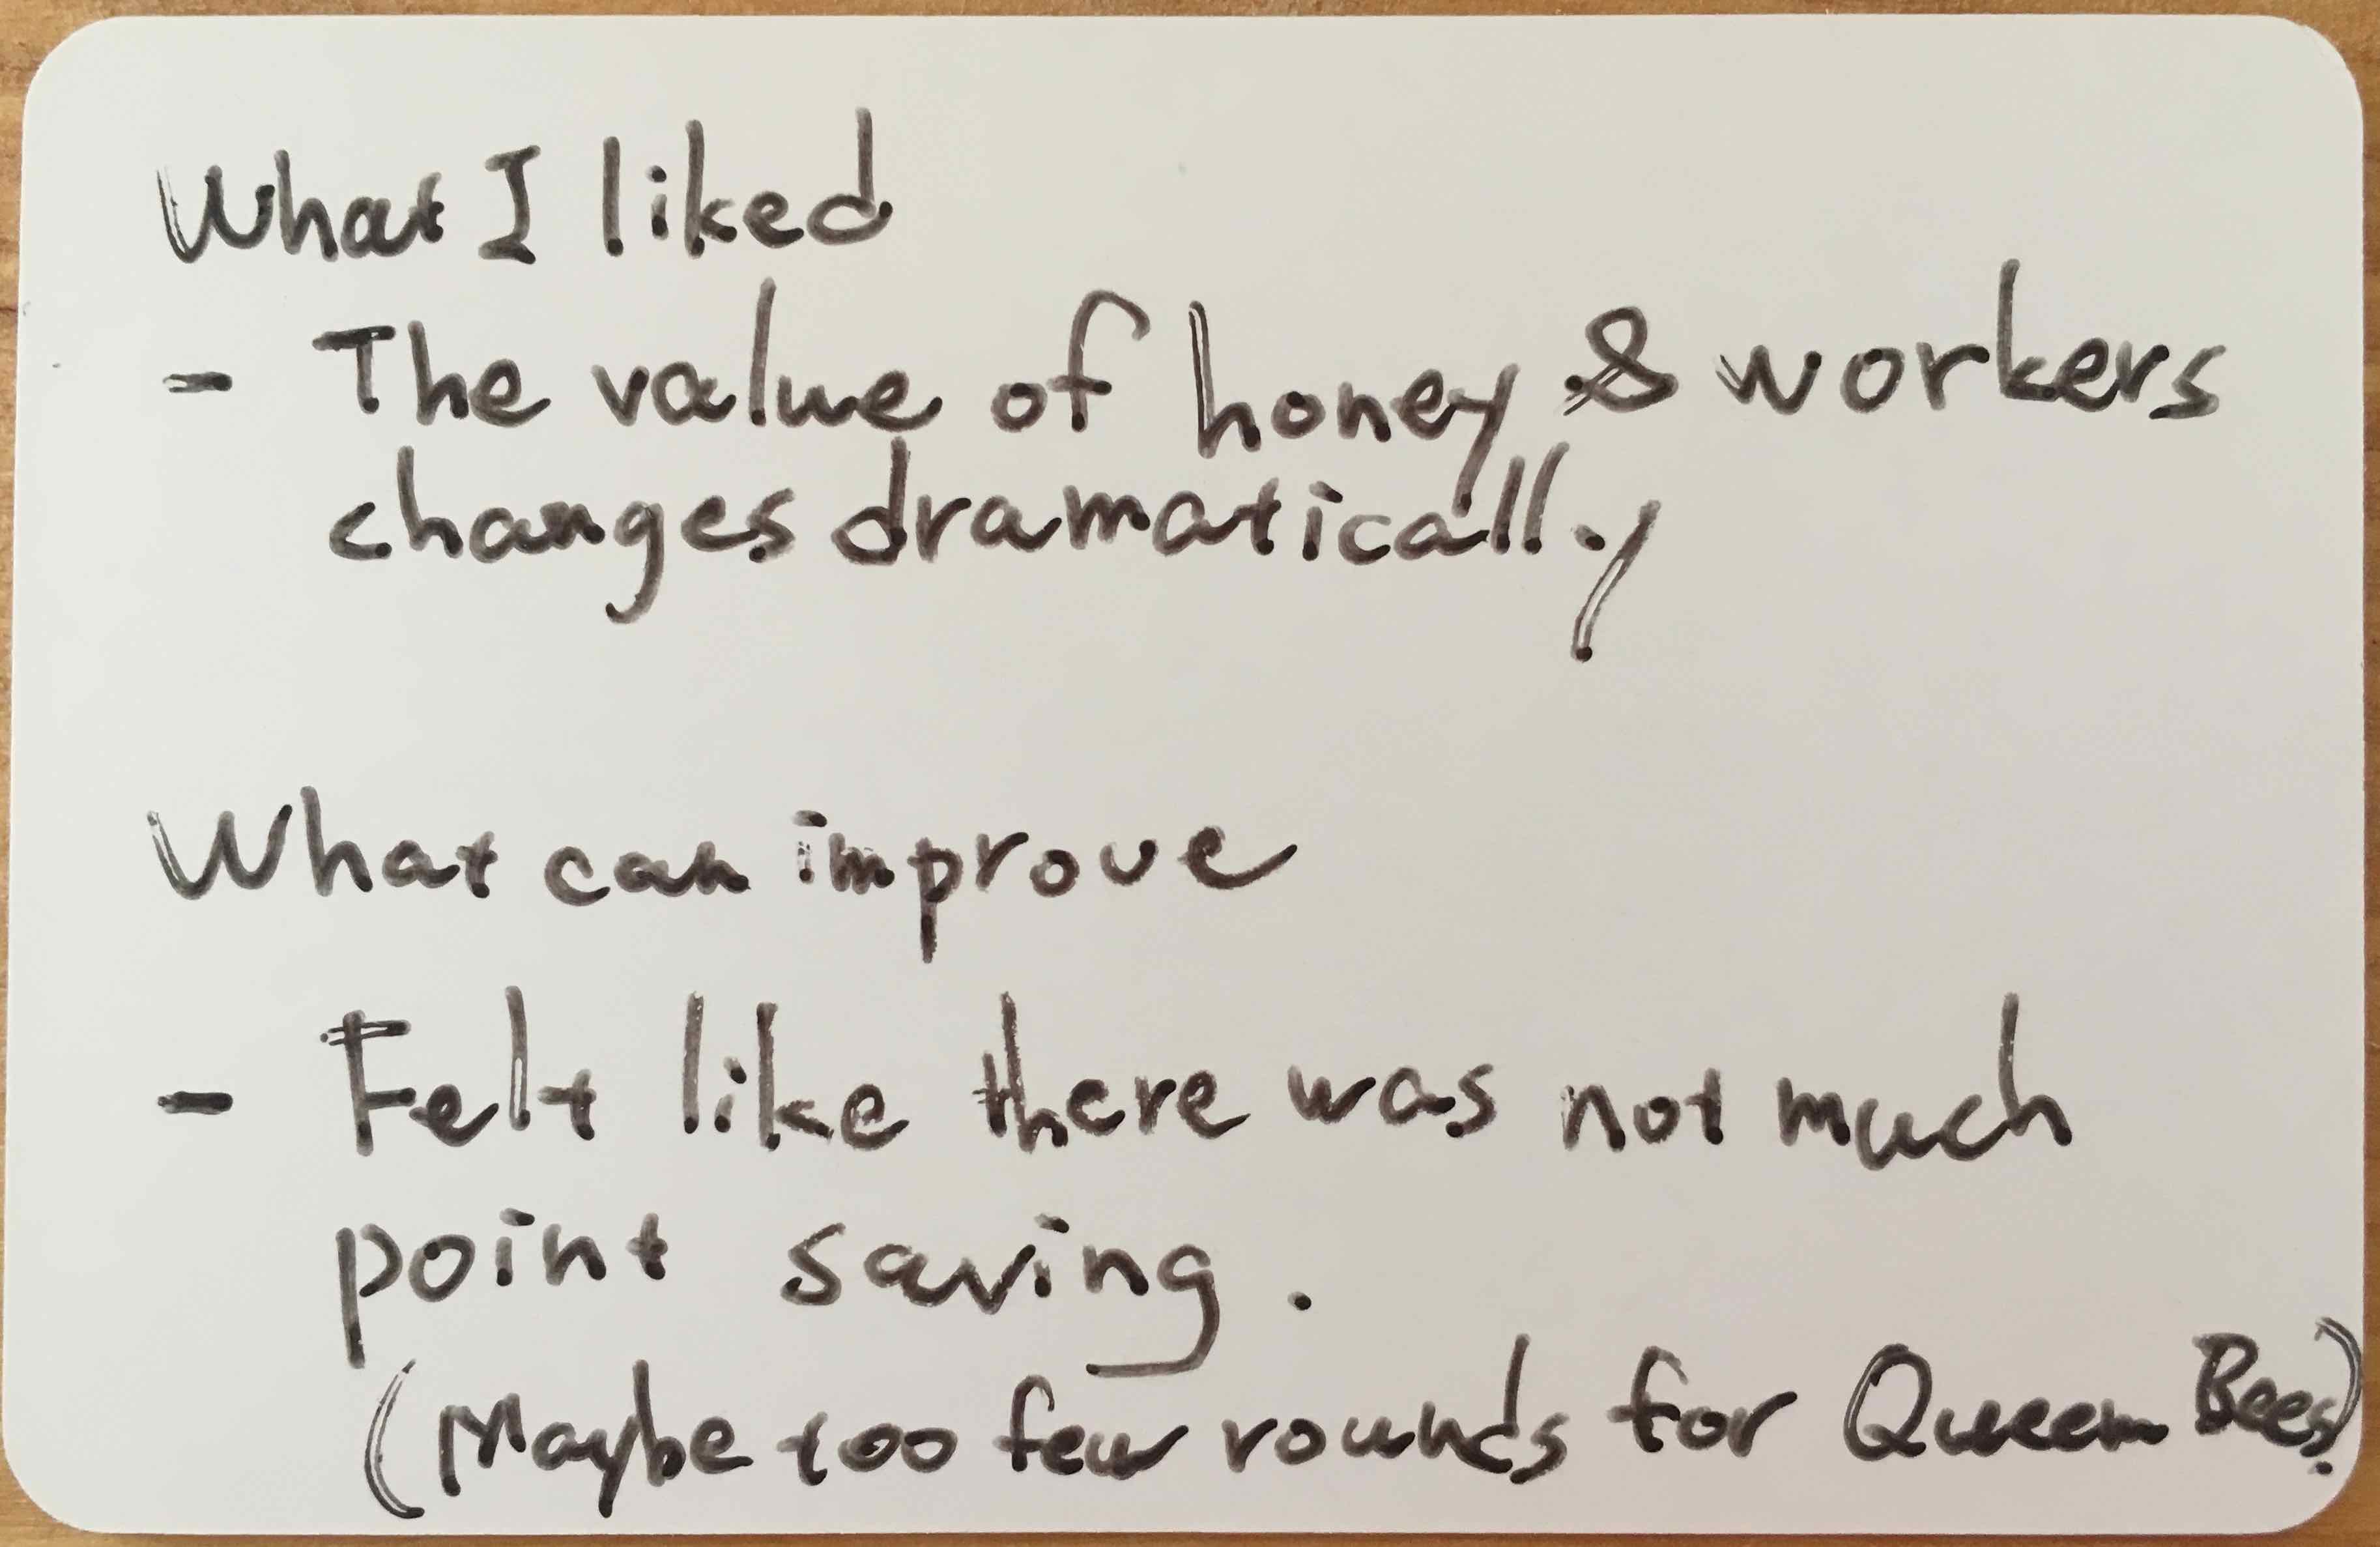 What I liked
- The value of honey & workers
changes dramatically
What can improve
- Felt like there was not much
point saving.
(Maybe too few rounds for Queen Bees)